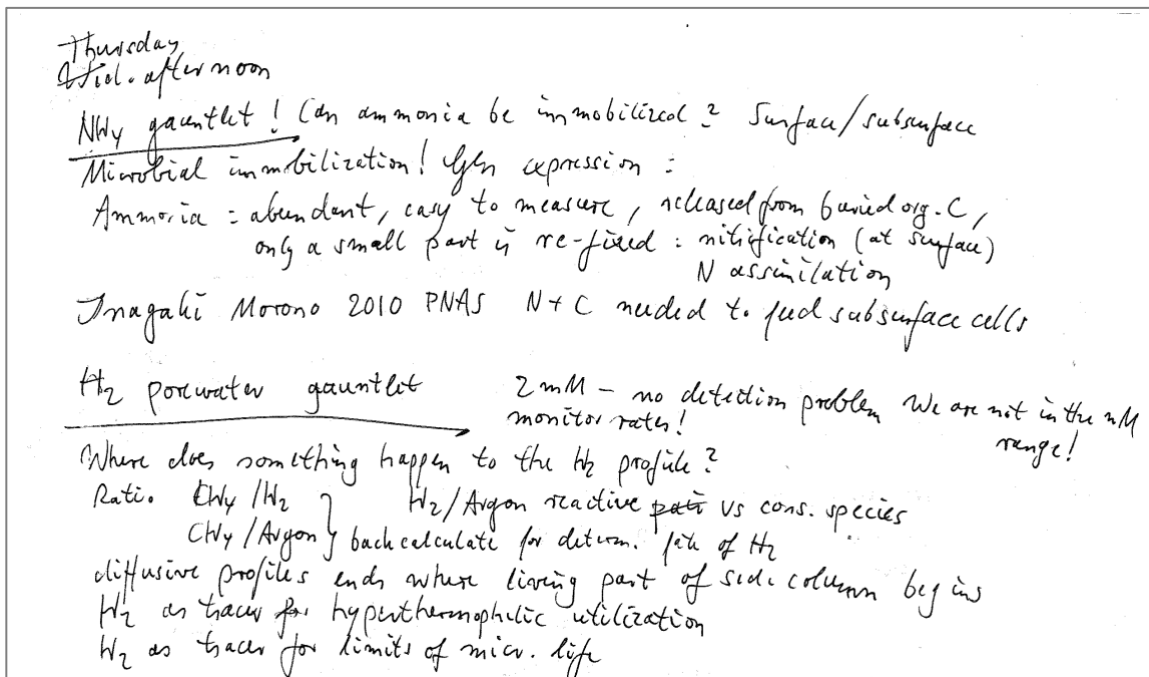 Thursday
Wed. afternoon
NH4 gauntlet! Can ammonia be immobilized? Surface/subsurface
Microbial immobilization! Gen expression:
Ammonia = abundant, easy to measure, released from buried org. C,
only a small part is re-fixed: nitrification (at surface)
N assimilation
Inagaki Morono 2010 PNAS N+C needed to feed subsurface cells
H2 porewater gauntlet 2 mM – no detection problem We are not in the nM
monitor rates! range!
Where does something happen to the H2 profile?
Ratio CH4/H2 } H2/Argon reactive pair vs cons. species
CH4/Argon } back calculate for determ. fate of H2
diffusive profiles ends where living part of sed. column begins
H2 as tracer for hyperthermophilic utilization
H2 as tracer for limits of micr. life